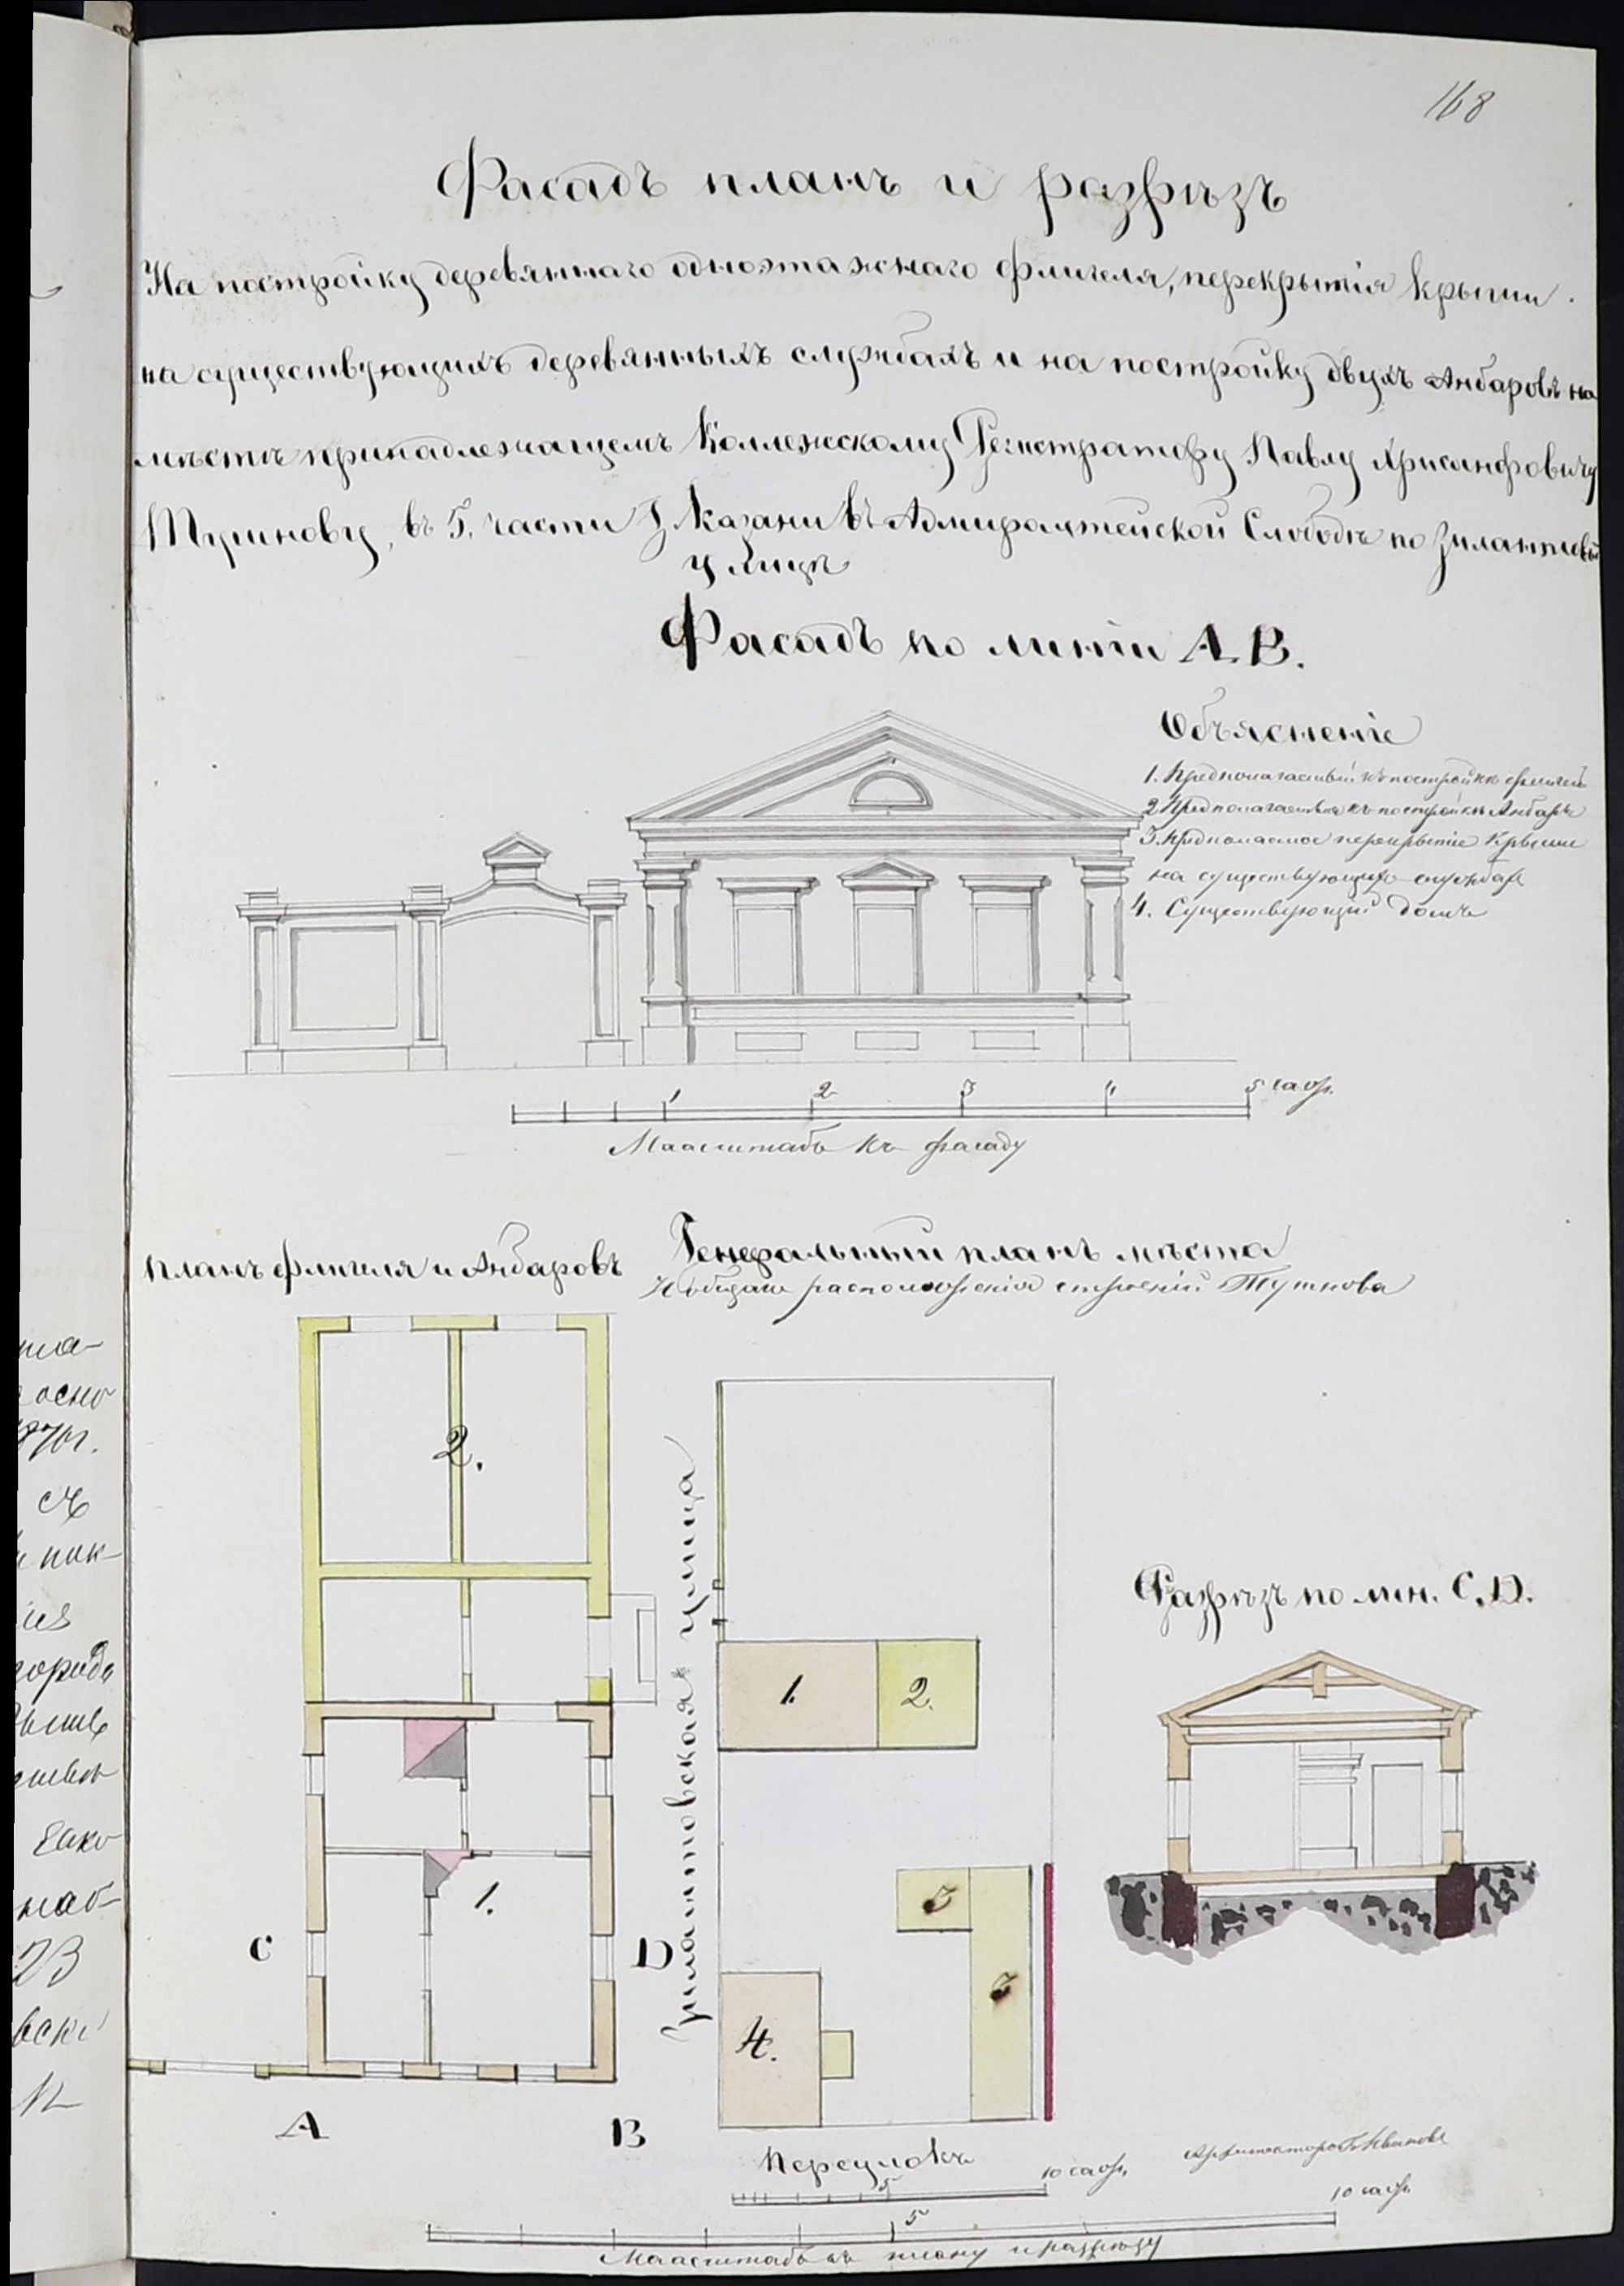 168
Фасадъ планъ и разрѣзъ
На постройку деревяннаго одноэтажнаго флигеля, перекрытія крыши
на существующихъ деревянныхъ службахъ и на постройку двухъ Анбаровъ на
мѣстѣ принадлежащемъ Коллежскому Регистратору Павлу Хрисанфовичу
въ 5. части Г. Казани въ Адмиралтейской Слободѣ по Зилантовской
улицѣ
Фасадъ по линіи А.В.
Объясненіе
1. Предполагаемый къ постройкѣ флигель
2. Предполагаемые къ постройкѣ Анбары
3. перекрытіе Крыши
на существующихъ службахъ
4. Существующій домъ
1 2 3 4 5 саж.
Маасштабъ къ фасаду
планъ флигеля и Анбаровъ
Генеральный планъ мѣста
расположенія строеній
2.
1.
C
D
A
B
Зилантовская улица
1.
2.
3
3
4.
Переулокъ
Разрѣзъ по лин. C.D.
5 10 саж.
Архитекторъ П. Ивановъ
5 10 саж.
Маасштабъ къ плану и разрѣзу
ма-
осно
870г.
съ
пак-
города
2В